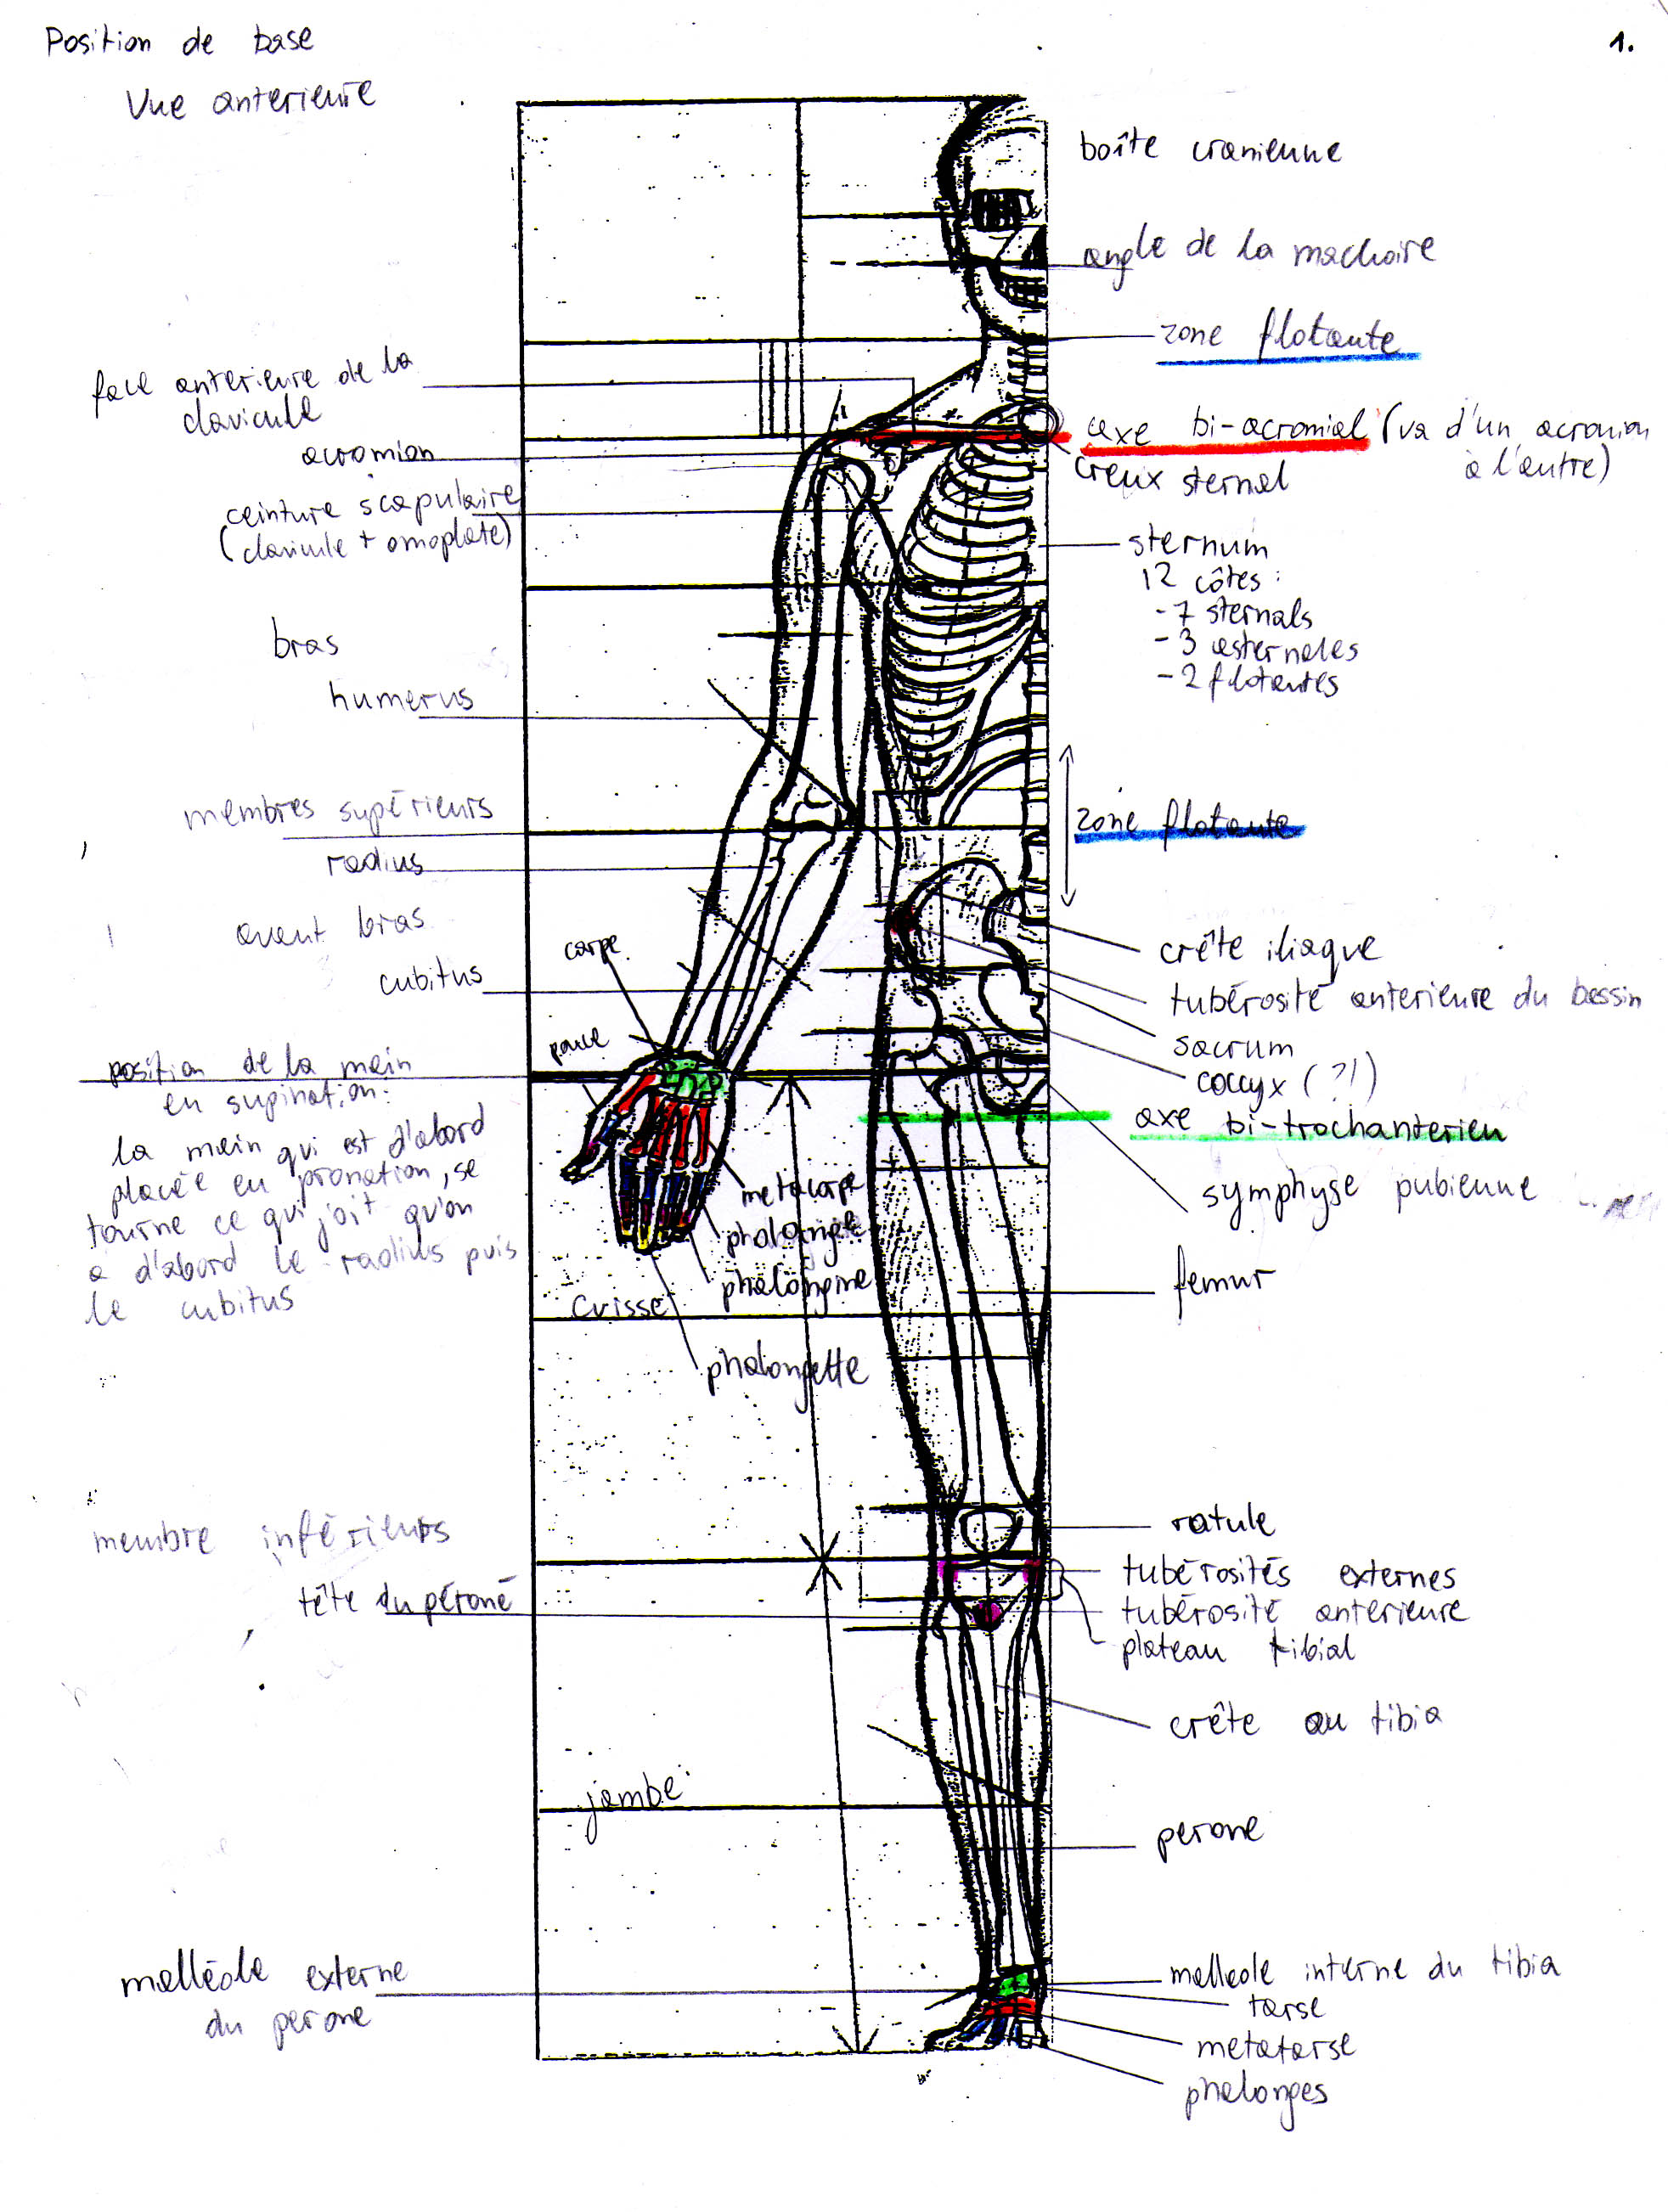 Position de base
1.
Vue anterieure
boîte cranienne
angle de la machoire
zone flotante
face anterieure de la
clavicule
axe bi-acromial (va d'un acromion
à l'autre)
acromion
creux sternal
ceinture scapulaire
(clavicule + omoplate)
sternum
12 côtes :
- 7 sternals
- 3 asternales
- 2 flotantes
bras
humerus
membres supérieurs
zone flotante
radius
avant bras
carpe
cubitus
crête iliaque
tubérosité anterieure du bassin
sacrum
coccyx (?!)
pouce
position de la main
en supination:
la main qui est d'abord
placée en pronation, se
tourne ce qui fait qu'on
a d'abord le radius puis
le cubitus
axe bi-trochanterien
symphyse pubienne
metacarpe
phalange
phalangine
phalangette
cuisse
femur
membre inférieurs
ratule
tubérosités externes
tubérosité anterieure
plateau tibial
tête du péroné
crête au tibia
jambe
perone
malléole externe
du perone
malleole interne du tibia
tarse
metatarse
phalanges